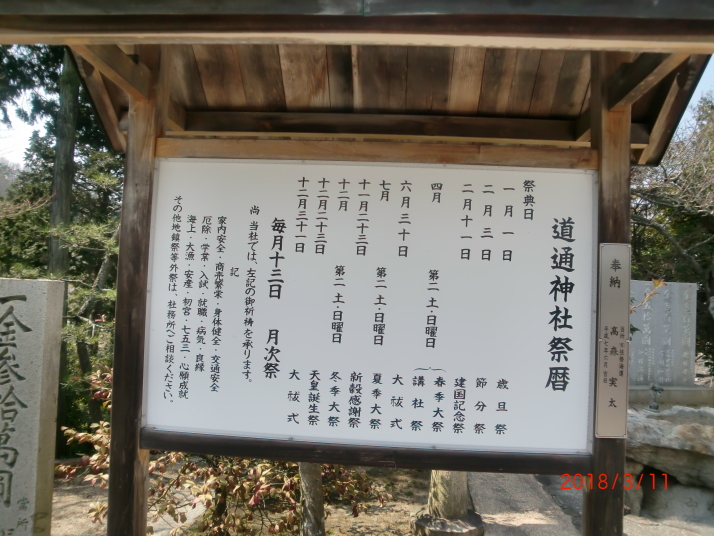 道通神社祭暦
祭典日
一月一日 歳旦祭
二月三日 節分祭
二月十一日 建国記念祭
四月 第二 土・日曜日 春季大祭
講社祭
六月三十日 大祓式
七月 第二 土・日曜日 夏季大祭
十一月二十三日 新穀感謝祭
十二月 第二 土・日曜日 冬季大祭
十二月二十三日 天皇誕生祭
十二月三十一日 大祓式
毎月十三日 月次祭
尚 当社では、左記の御祈祷を承ります。
記
家内安全・商売繁栄・身体健全・交通安全
厄除・学業・入試・就職・病気・良縁
海上・大漁・安産・初宮・七五三・心願成就
その他地鎮祭等外祭は、社務所へご相談ください。
奉納
高森実太
一金参拾萬円
当所
2018/3/11